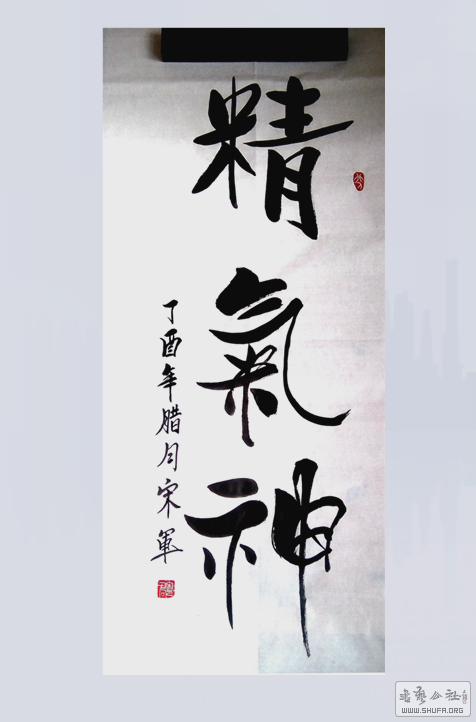 精氣神
丁酉年腊月宋軍
書藝公社
WWW.SHUFA.ORG